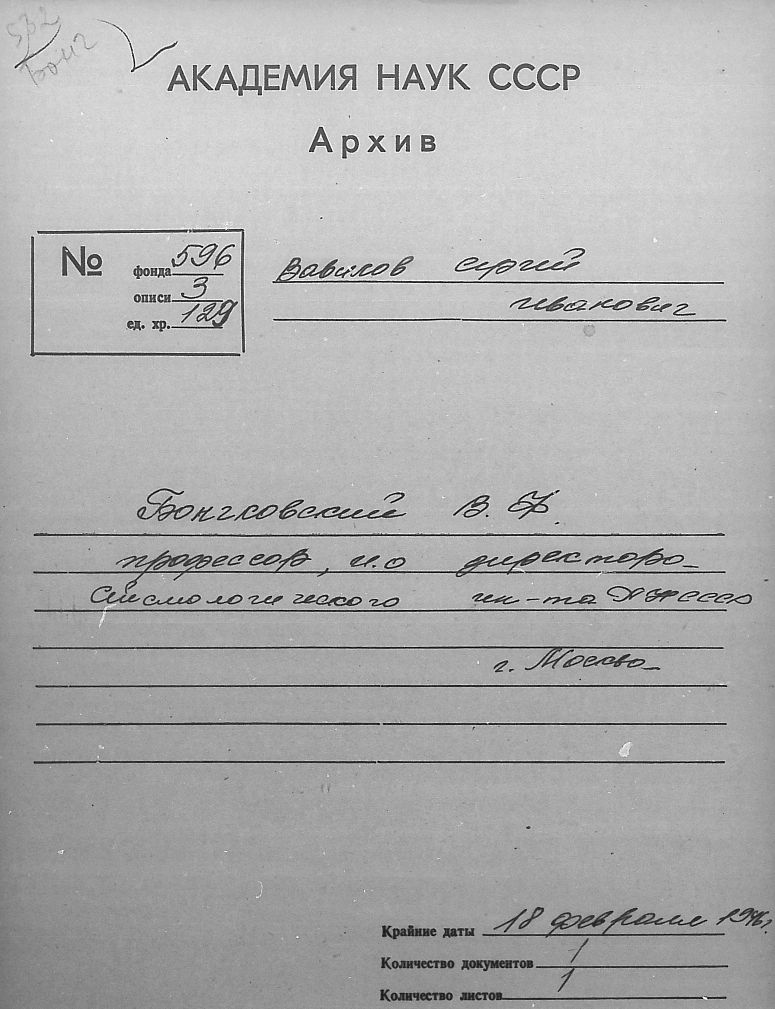 532
Бонч
АКАДЕМИЯ НАУК СССР
Архив
№
фонда 596
описи 3
ед. хр. 129
Вавилов Сергей
Иванович
Бончковский В. Ф.
профессор, и.о директора
Сейсмологического ин-та АН СССР
г. Москва
Крайние даты 18 февраля 1946г.
Количество документов 1
Количество листов 1